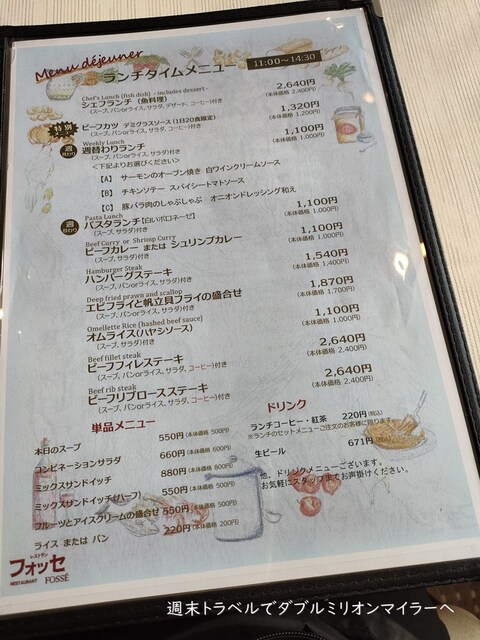 Menu déjeuner
ランチタイムメニュー 11:00〜14:30
Chef's Lunch (fish dish) - includes dessert -
シェフランチ（魚料理） 2,640円
（スープ、パンorライス、サラダ、デザート、コーヒー)付き (本体価格 2,400円)
特別
ビーフカツ デミグラスソース（1日20食限定） 1,320円
（スープ、パンorライス、サラダ)付き (本体価格 1,200円)
週替わり
Weekly Lunch
週替わりランチ 1,100円
（スープ、パンorライス、サラダ)付き (本体価格 1,000円)
<下記よりお選びください>
【A】 サーモンのオーブン焼き 白ワインクリームソース
【B】 チキンソテー スパイシートマトソース
【C】 豚バラ肉のしゃぶしゃぶ オニオンドレッシング和え
週替わり
Pasta Lunch
パスタランチ【白いボロネーゼ】 1,100円
（スープ、サラダ)付き (本体価格 1,000円)
Beef Curry or Shrimp Curry
ビーフカレー または シュリンプカレー 1,100円
（スープ、サラダ)付き (本体価格 1,000円)
Hamburger Steak
ハンバーグステーキ 1,540円
（スープ、パンorライス、サラダ)付き (本体価格 1,400円)
Deep fried prawn and scallop
エビフライと帆立貝フライの盛合せ 1,870円
（スープ、パンorライス、サラダ)付き (本体価格 1,700円)
Omellette Rice (hashed beef sauce)
オムライス(ハヤシソース) 1,100円
（スープ、サラダ)付き (本体価格 1,000円)
Beef fillet steak
ビーフフィレステーキ 2,640円
（スープ、パンorライス、サラダ、コーヒー)付き (本体価格 2,400円)
Beef rib steak
ビーフリブロースステーキ 2,640円
（スープ、パンorライス、サラダ、コーヒー)付き (本体価格 2,400円)
単品メニュー
本日のスープ 550円 (本体価格 500円)
コンビネーションサラダ 660円 (本体価格 600円)
ミックスサンドイッチ 880円 (本体価格 800円)
ミックスサンドイッチ(ハーフ) 550円 (本体価格 500円)
フルーツとアイスクリームの盛合せ 550円 (本体価格 500円)
ライス または パン 220円 (本体価格 200円)
ドリンク
ランチコーヒー・紅茶 220円(税込)
※ランチのセットメニューご注文のお客様に限ります。
生ビール 671円(税込)
他、ドリンクメニューございます。
お気軽にスタッフまでお声掛けください。
レストラン
フォッセ
RESTAURANT FOSSÉ
週末トラベルでダブルミリオンマイラーへ